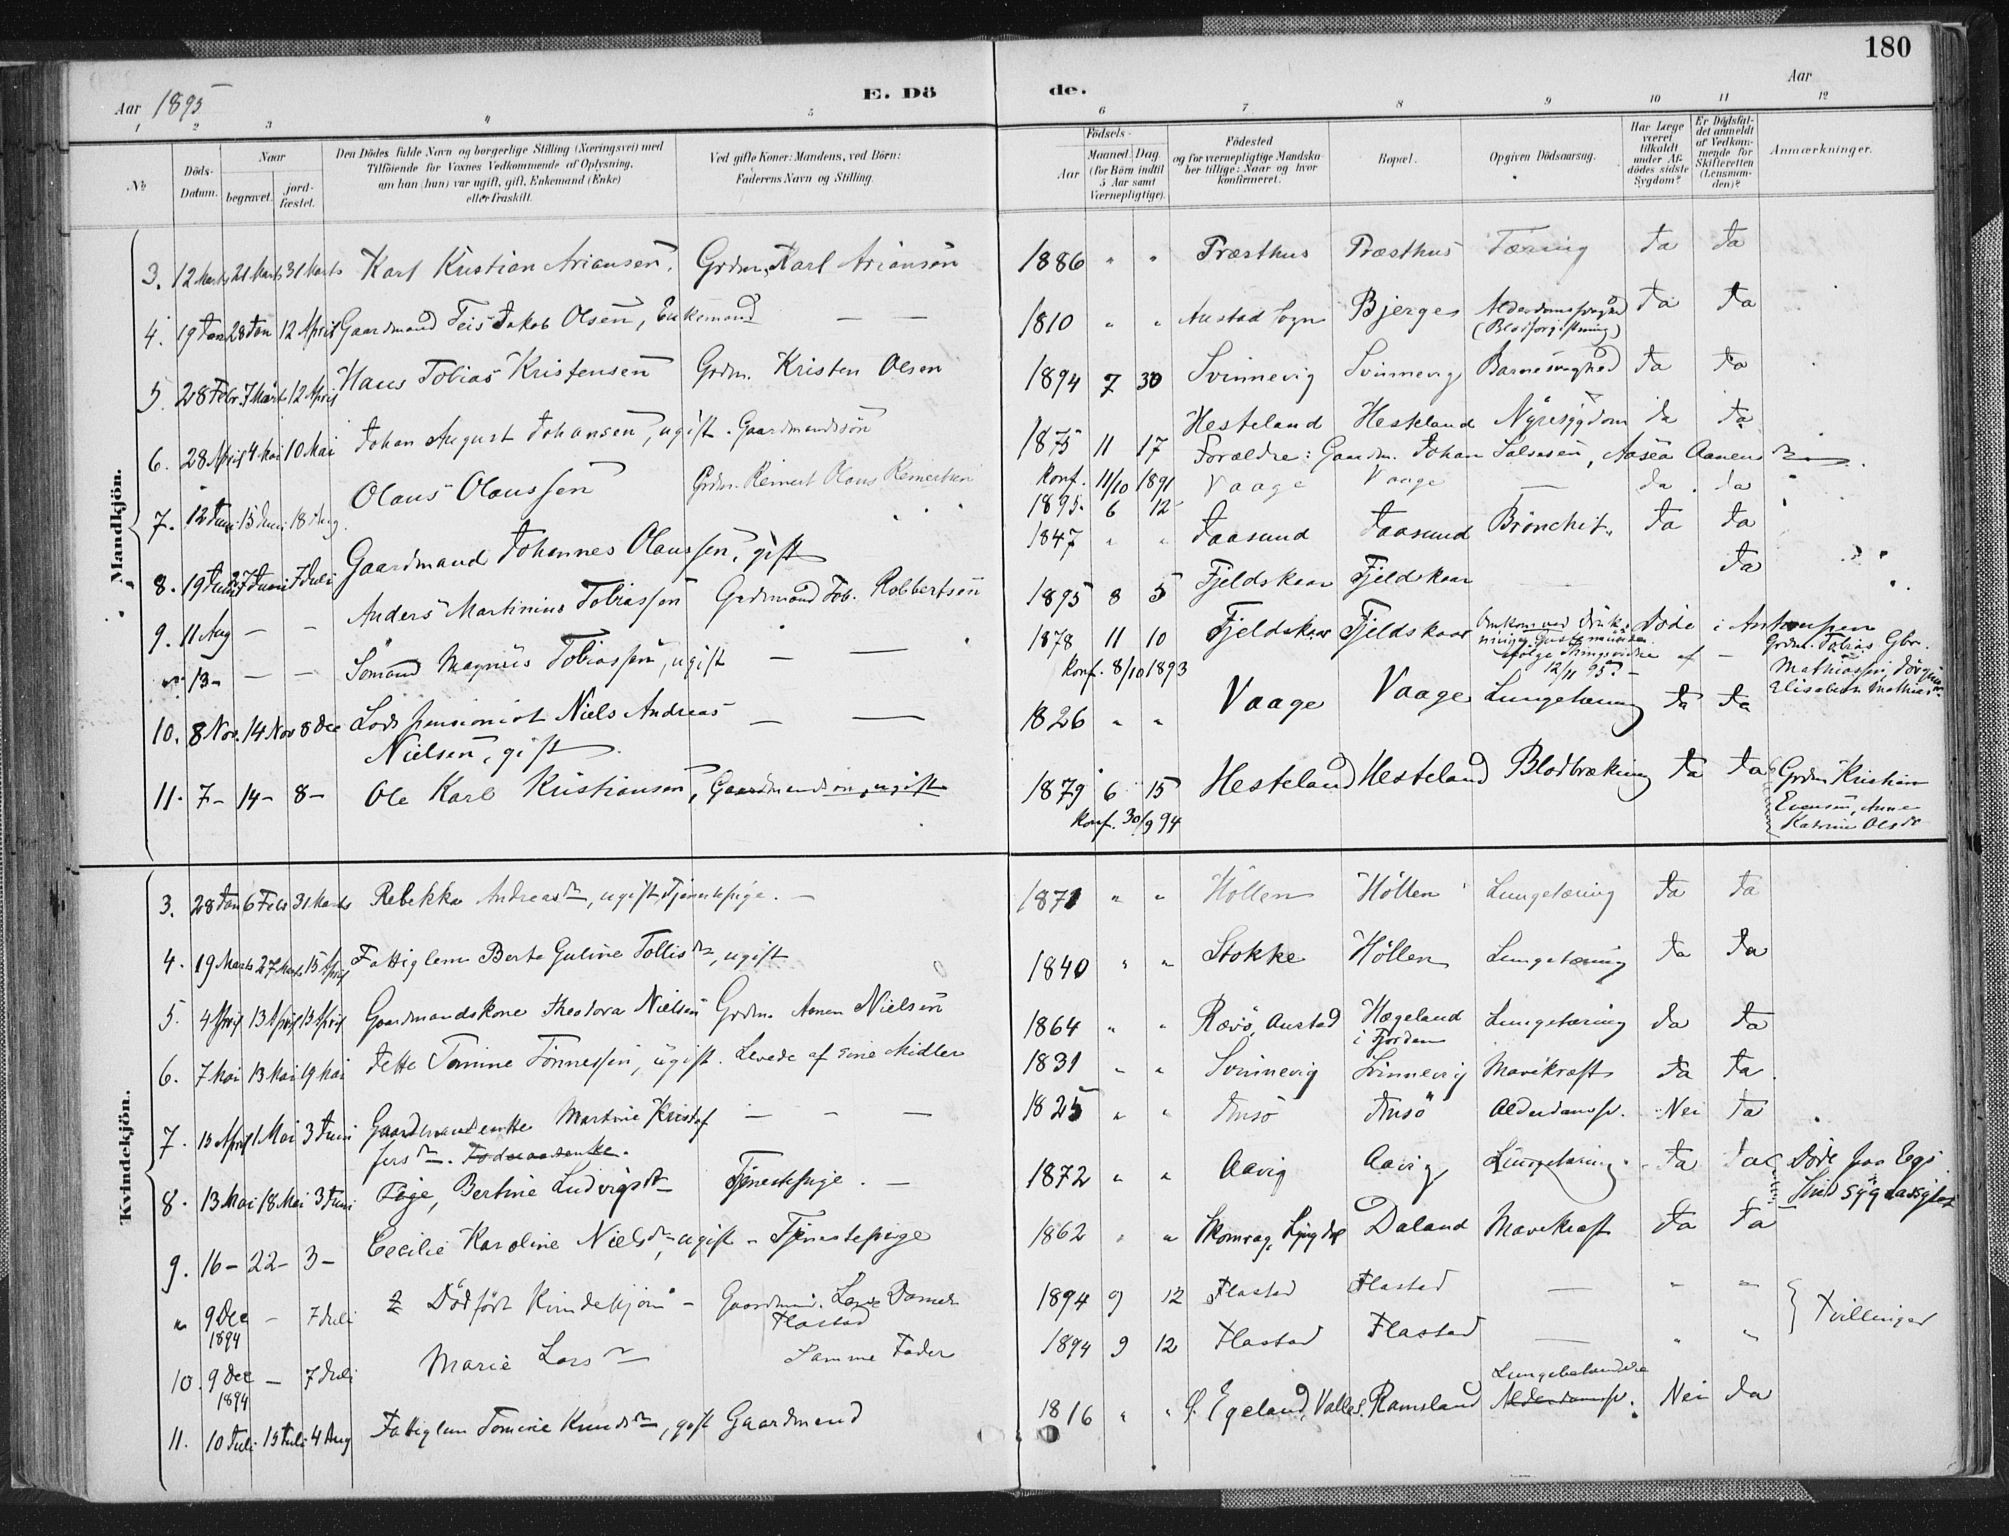 180
Aar 1895
E. Döde.
Aar
1 2 3 4 5 6 7 8 9 10 11 12
No
Döds-Datum.
Naar
begravet.
jord-fæstet.
Den Dödes fulde Navn og borgerlige Stilling (Næringsvei) med
Tilföiende for Voxnes Vedkommende af Oplysning,
om han (hun) var ugift, gift, Enkemand (Enke)
eller fraskilt.
Ved gifte Koner: Mandens, ved Börn:
Faderens Navn og Stilling.
Födsels-
Aar
Maaned. Dag
(for Börn indtil
5 Aar samt
Værnepligtige).
Födested
og for værnepligtige Mandska-
ber tillige: Naar og hvor
konfirmeret.
Bopæl.
Opgiven Dödsaarsag.
Har Læge
været
tilkaldt
under Af-
dödes sidste
Sygdom?
Er Dödsfal-
det anmeldt
af Vedkom-
mende for
Skifteretten
(Lensman-
den)?
Anmærkninger.
Mandkjön.
3. 12 Marts 21 Marts 31 Marts Karl Kristian Ariansen. Grdm. Karl Ariansen 1886 " " Præsthus Præsthus Tæring Ja Ja
4. 19 Jan 28 Jan 12 April Gaardmand Teis Jakob Olsen, Enkemand — — 1810 " " Austad Sogn Bjerges Alderdomssvaghed Ja Ja
(Blodforgiftning)
5. 28 Febr. 7 Marts 12 April Hans Tobias Kristensen Grdm. Kristen Olsen 1894 7 30 Svinnevig Svinnevig Barnesvaghed Ja Ja
6. 28 April 4 Mai 10 Mai Johan August Johansen, ugift. Gaardmandssön 1875 11 17 Hesteland Hesteland Nyresygdom Ja Ja
Konf. 11/10 1891 Forældre: Gaardm. Johan Salvesen, Aasea Aanens
7. 12 Juni 15 Juni 18 Aug. Olaus Olaussen Grdm. Reinert Olaus Reinertsen 1895 6 12 Vaage Vaage — Ja Ja
8. 19 Juni 27 Juni 7 Juli Gaardmand Johannes Olaussen, gift 1847 " " Jaasund Jaasund Bronchit. Ja Ja
9. 11 Aug — — Anders Martinius Tobiassen Grdmand Tob. Robbertsen 1895 8 5 Fjeldskaar Fjeldskaar — Ja
" 13 - — — Sömand Magnus Tobiassen, ugift — — 1878 11 10 Fjeldskaar Fjeldskaar Omkom ved Druk- Döde i Antwerpen
Konf. 8/10 1893 ning
12/11 95
Grdm. Tobias Gbr.
Mathiassen, Jörgine
Elisabeth Mathias
10. 8 Nov. 14 Nov 8 Dec Lodspensionist Niels Andreas — — 1826 " " Vaage Vaage Lungetæring Ja Ja
Nielsen, gift.
11. 7 - 14 - 8 - Ole Karl Kristiansen, Gaardmandssön, ugift 1879 6 15 Hesteland Hesteland Blodbrækning Ja Ja Grdm. Kristian
Konf. 30/9 94 Evensen, Anne
Katrine Olsdr
Kvindekjön.
3. 28 Jan 6 Feb 31 Marts Rebekka Andreasdr, ugift, Tjenestepige. — 1871 " " Höllen Höllen Lungetæring Ja Ja
4. 19 Marts 27 Marts 15 April Fattiglem Berte Guline Tollisdr, ugift 1840 " " Stokke Höllen Lungetæring Ja Ja
5. 4 April 13 April 13 April Gaardmandskone Theodora Nielsen Grdm. Aanen Nielsen 1864 " " Rævö, Austad Hægeland Lungetæring Ja Ja
i Fjorden
6. 7 Mai 13 Mai 19 Mai Jette Tomine Tönnessen, ugift. Levede af sine Midler 1831 " " Svinnevig Svinnevig Mavekræft Ja Ja
7. 15 April 1 Mai 3 Juni Gaardmandsenke Martine Kristof — — — 1825 " " Ansö Ansö Alderdomssv. Nei Ja
fersdr.
8. 13 Mai 18 Mai 3 Juni Pige, Bertine Ludvigsdr Tjenestepige. — 1872 " " Aavig Aavig Lungetæring. Ja Ja Döde paa Egs
Sind Sygeasyl
9. 16 - 22 - 3 - Cecilie Karoline Nielsdr, ugift - Tjenestepige 1862 " " Skomrag, Lyngdal Daland Mavekræft Ja Ja
" 9 Dec — 7 Juli Dödfödt Kvindekjön - Gaardmand. Lars Daniel 1894 9 12 Flastad Flastad — " "
1894 Flastad
Tvillinger
10. 9 Dec — 7 Juli Marie Larsdr Samme Fader 1894 9 12 Flastad Flastad — " "
1894
11. 10 Juli 15 Juli 4 Aug Fattiglem Tomine Knudsdr, gift Gaardmand 1816 " " Ö. Egeland, Valles. Ramsland Alderdomssv. Nei Ja